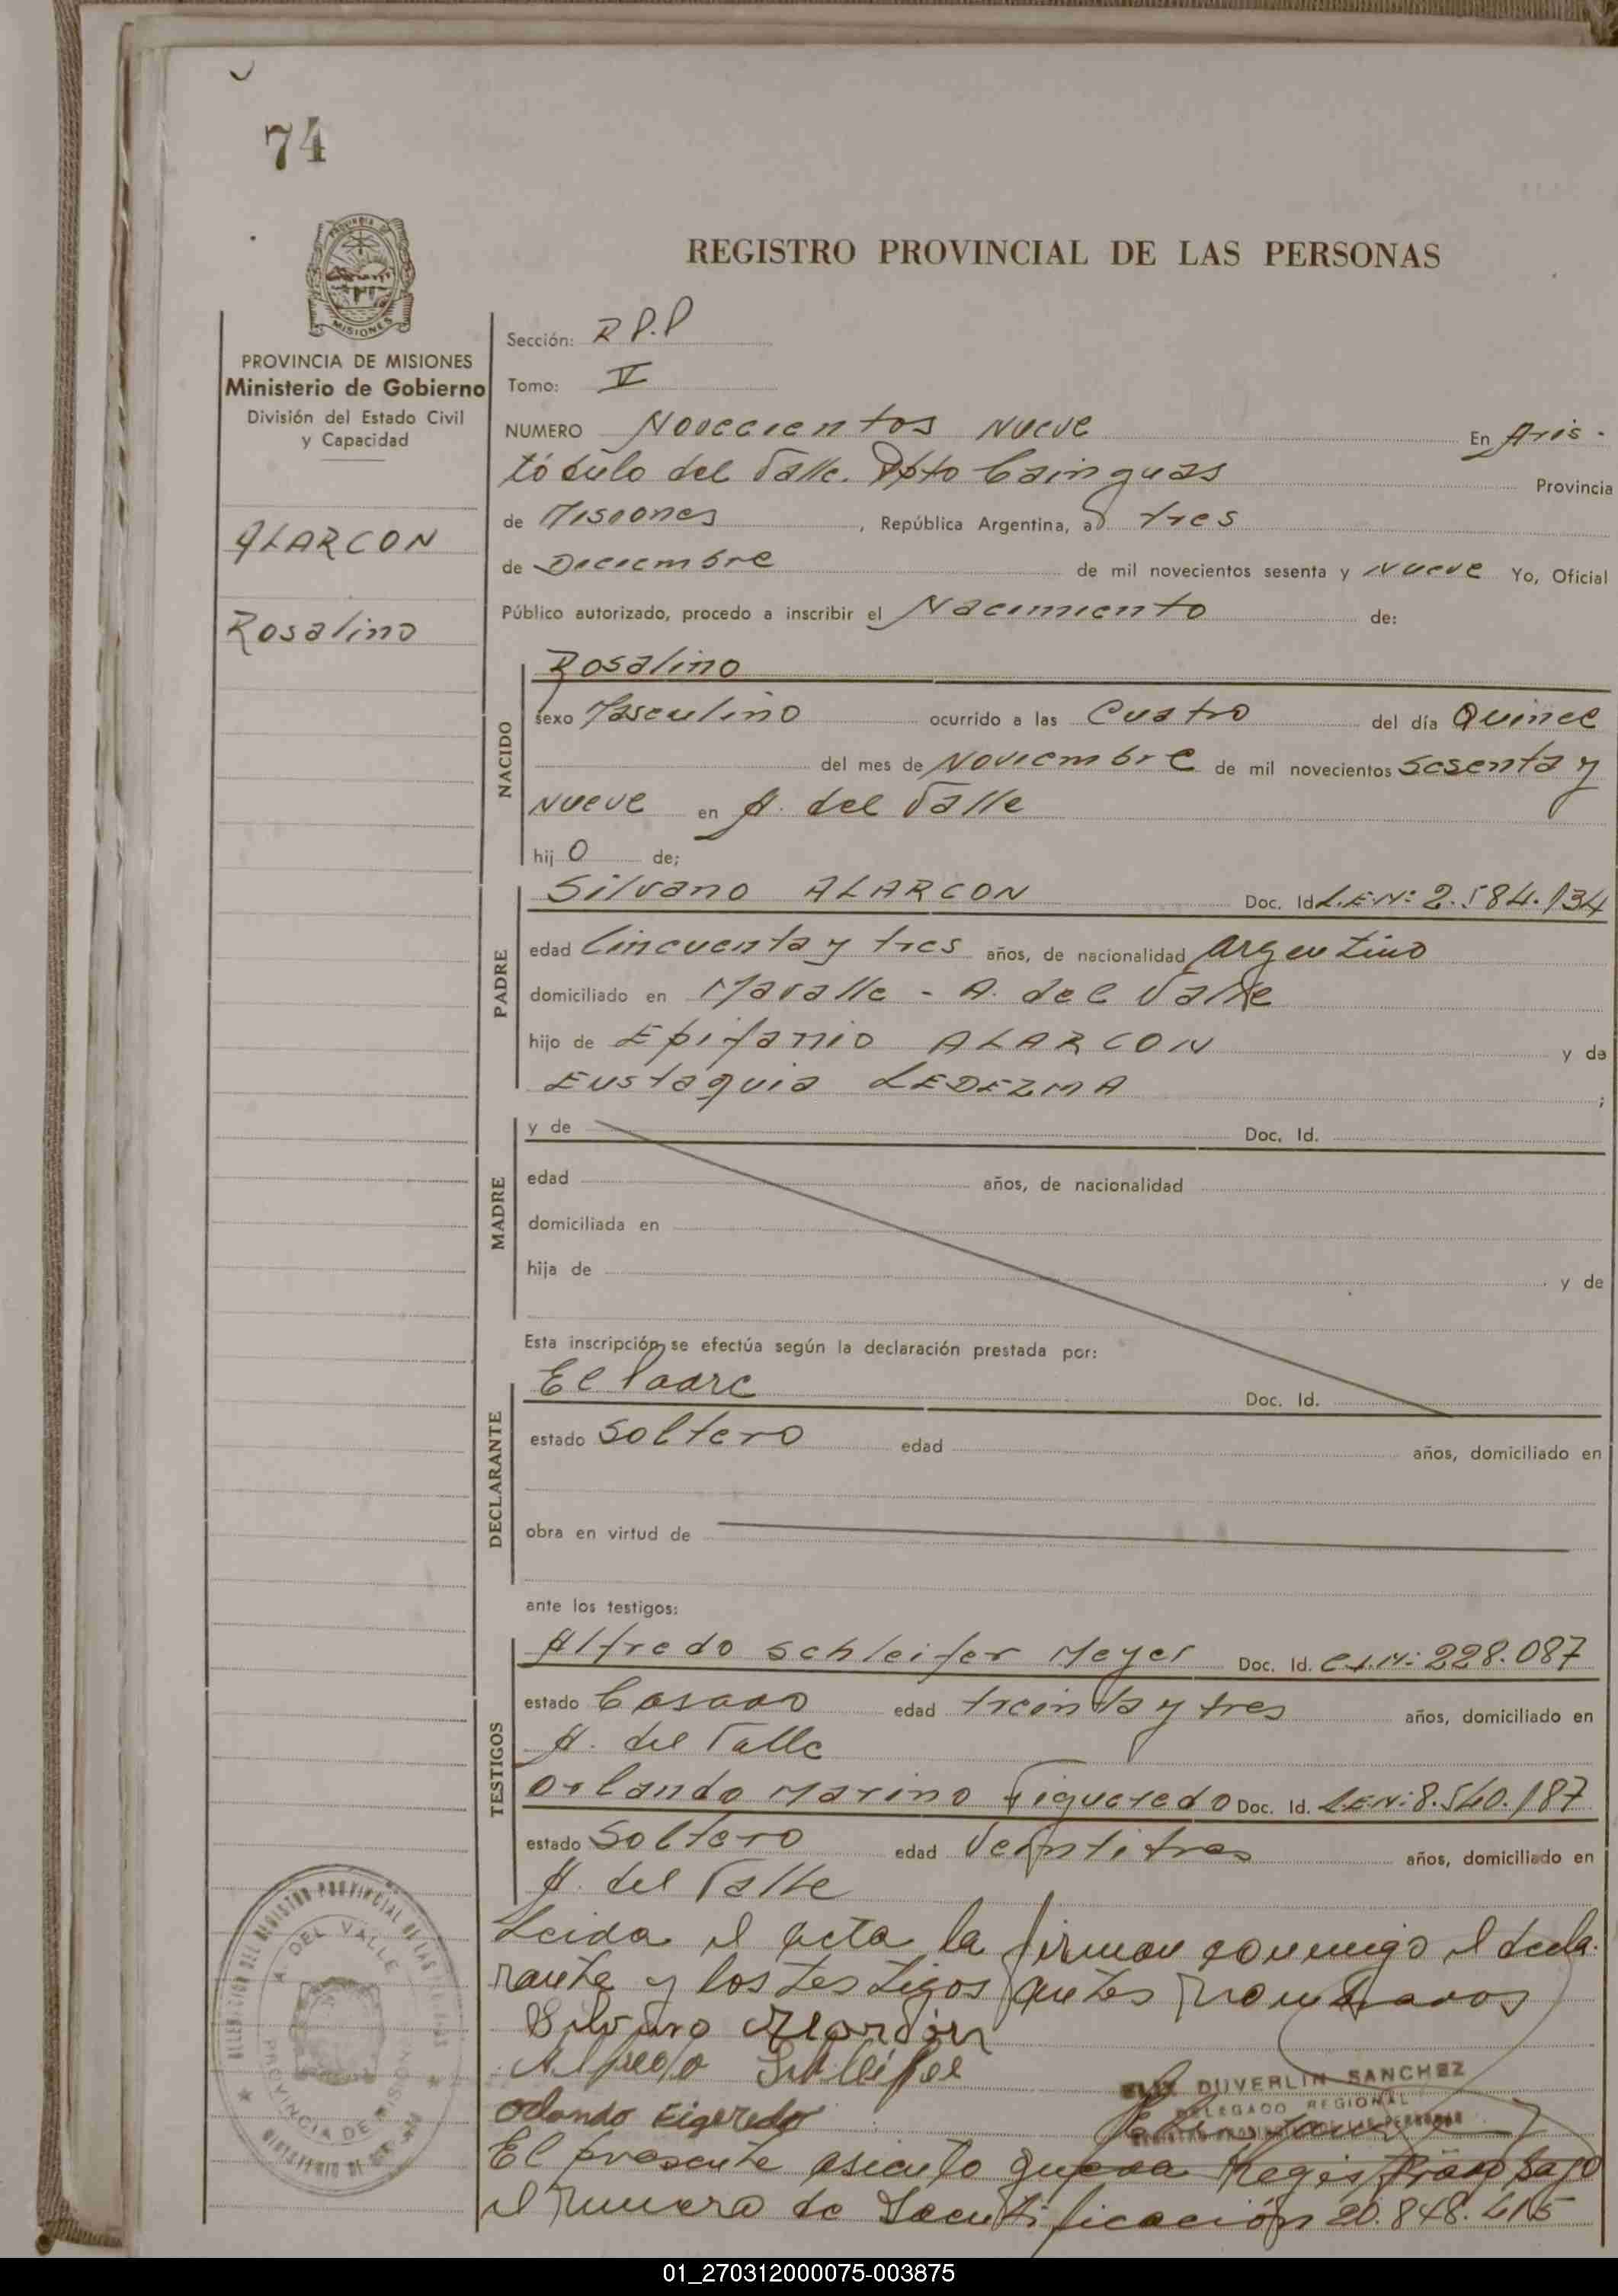 74
PROVINCIA DE MISIONES
Ministerio de Gobierno
División del Estado Civil
y Capacidad
ALARCON
Rosalino
REGISTRO PROVINCIAL DE LAS PERSONAS
Sección: R P.P
Tomo: V
NUMERO Novecientos Nueve En Aris-
tóbulo del Valle. Dpto Cainguas Provincia
de Misiones, República Argentina, a tres
de Diciembre de mil novecientos sesenta y nueve Yo, Oficial
Público autorizado, procedo a inscribir el Nacimiento de:
NACIDO
Rosalino
sexo Masculino ocurrido a las Cuatro del día Quince
del mes de Noviembre de mil novecientos sesenta y
nueve en A. del Valle
hijo de;
PADRE
Silvano ALARCON Doc. Id. L.E.N: 2.584.134
edad Cincuenta y tres años, de nacionalidad Argentino
domiciliado en Mavalle - A. del Valle
hijo de Epifanio ALARCON y de
Eustaquia LEDEZMA;
MADRE
y de Doc. Id.
edad años, de nacionalidad
domiciliada en
hija de y de
Esta inscripción se efectúa según la declaración prestada por:
DECLARANTE
El Padre Doc. Id.
estado Soltero edad años, domiciliado en
obra en virtud de
ante los testigos:
TESTIGOS
Alfredo Schleifer Meyer Doc. Id. C.I.N: 228.087
estado Casado edad treinta y tres años, domiciliado en
A. del Valle
Orlando Marino Figueredo Doc. Id. L.E.N: 8.540.187
estado Soltero edad Veintitres años, domiciliado en
A. del Valle
Leida el acta la firman conmigo el decla-
rante y los testigos antes nombrados
Silvano Alarcon
Alfredo Schleifer
Orlando Figeredo
DUVERLIN SANCHEZ
DELEGADO REGIONAL
El presente asiento queda Registrado bajo
el numero de Identificación 20.848.415
DELEGACION DEL REGISTRO PROVINCIAL DE LAS PERSONAS
A. DEL VALLE
PROVINCIA DE MISIONES
01_270312000075-003875